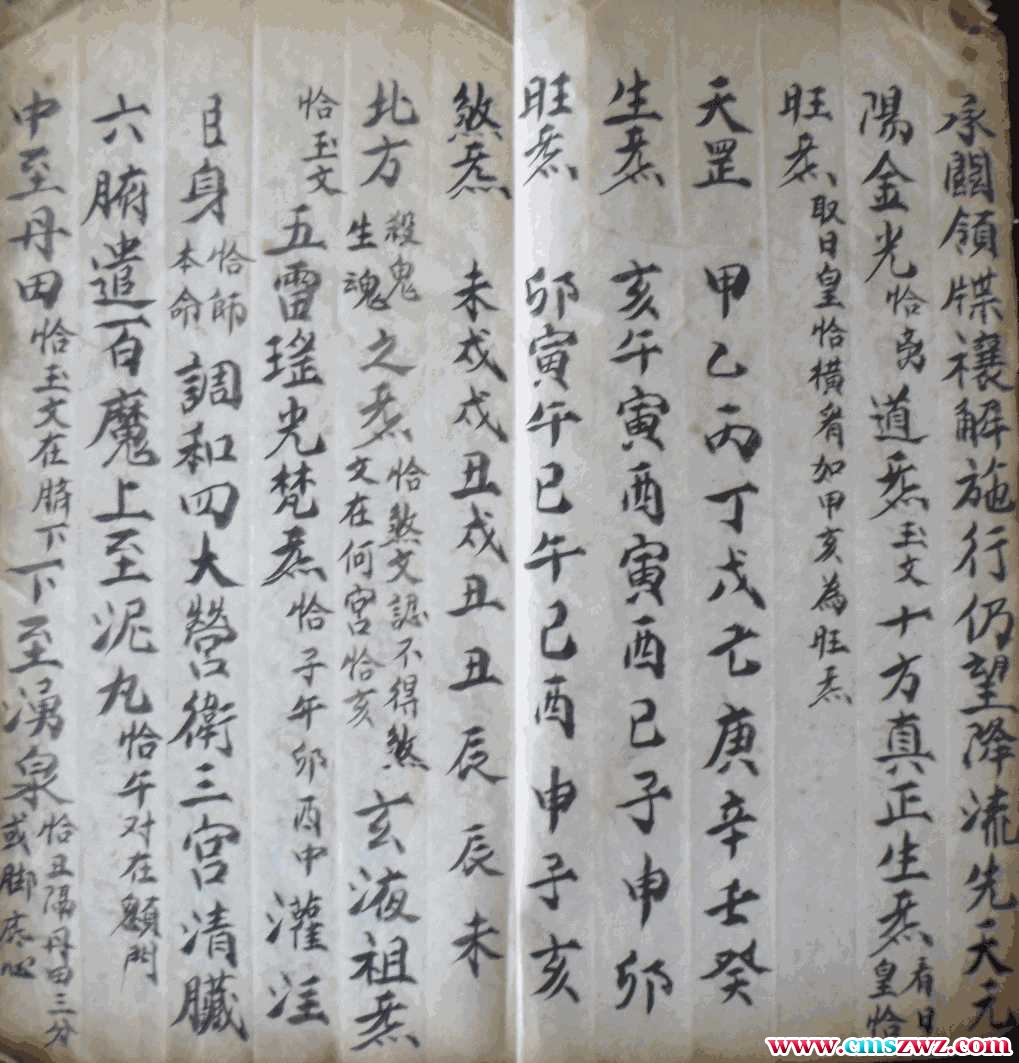 承闗領牒禳解施行仍望降流先天元
陽金光恰亥道炁玉文十方真正生炁看日皇恰
旺炁取日皇恰橫看如甲亥為旺炁
天罡 甲乙丙丁戊己庚辛壬癸
生炁 亥午寅酉寅酉巳子申卯
旺炁 卯寅午巳午巳酉申子亥
煞炁 未戌戌丑戌丑丑辰辰未
北方殺鬼生魂之炁恰煞文認不得煞文在何宮恰亥玄液祖炁
恰玉文五雷瑤光梵炁恰子午卯酉中灌注
自身恰師本命調和四大營衛三宮清臟
六腑遣百魔上至泥丸恰午对在額門
中至丹田恰玉文在臍下下至湧泉恰丑隔丹田三分或脚底心
www.cmszwz.com